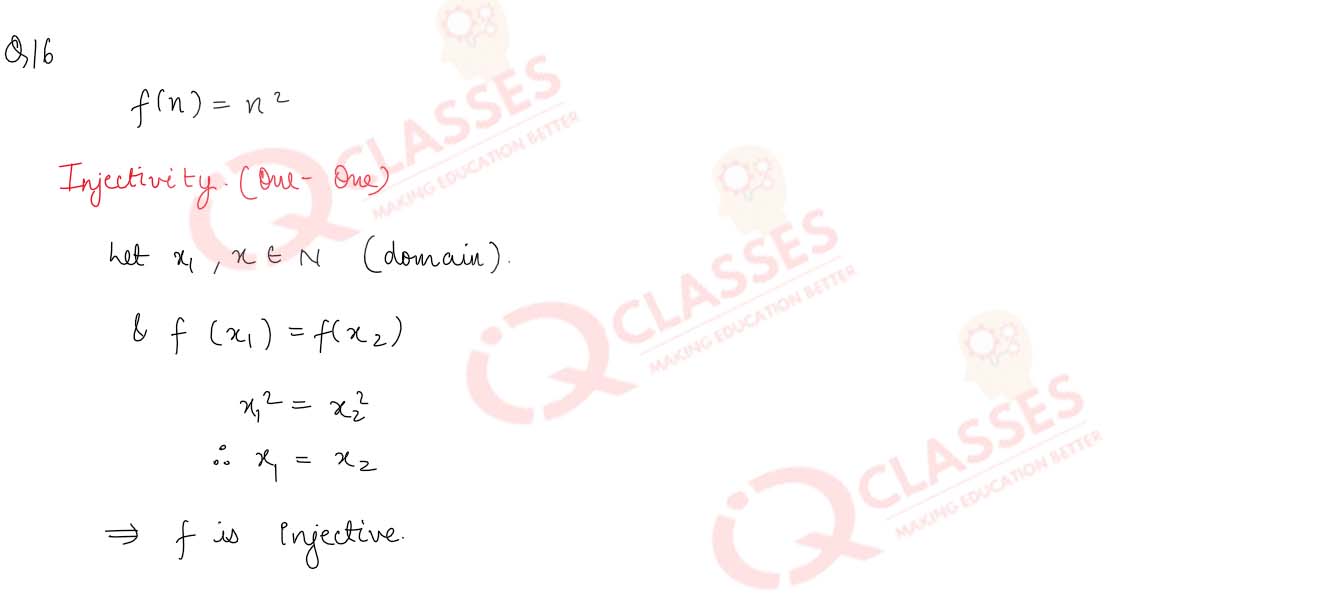 Q,16
f(n) = n²
Injectivity. (One- One)
Let x₁ , x ∈ N (domain).
& f (x₁) = f(x₂)
x₁² = x₂²
∴ x₁ = x₂
⇒ f is Injective.
iQ CLASSES
MAKING EDUCATION BETTER
iQ CLASSES
MAKING EDUCATION BETTER
iQ CLASSES
MAKING EDUCATION BETTER